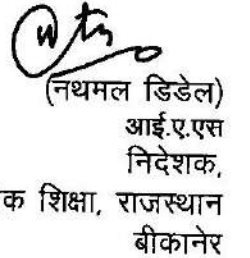 (नथमल डिडेल)
आई.ए.एस
निदेशक,
क शिक्षा, राजस्थान
बीकानेर